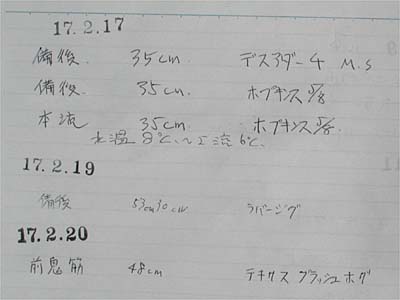 17.2.17
備後. 35cm. デスアダー4 M.S
備後. 35cm. ホプキンス 5/8
本流 35cm ホプキンス 5/8.
水温 8℃.〜 流 6℃.
17.2.19
備後 53cm 30cm ラバージグ
17.2.20
前鬼筋 48cm テキサス ブラッシュホグ